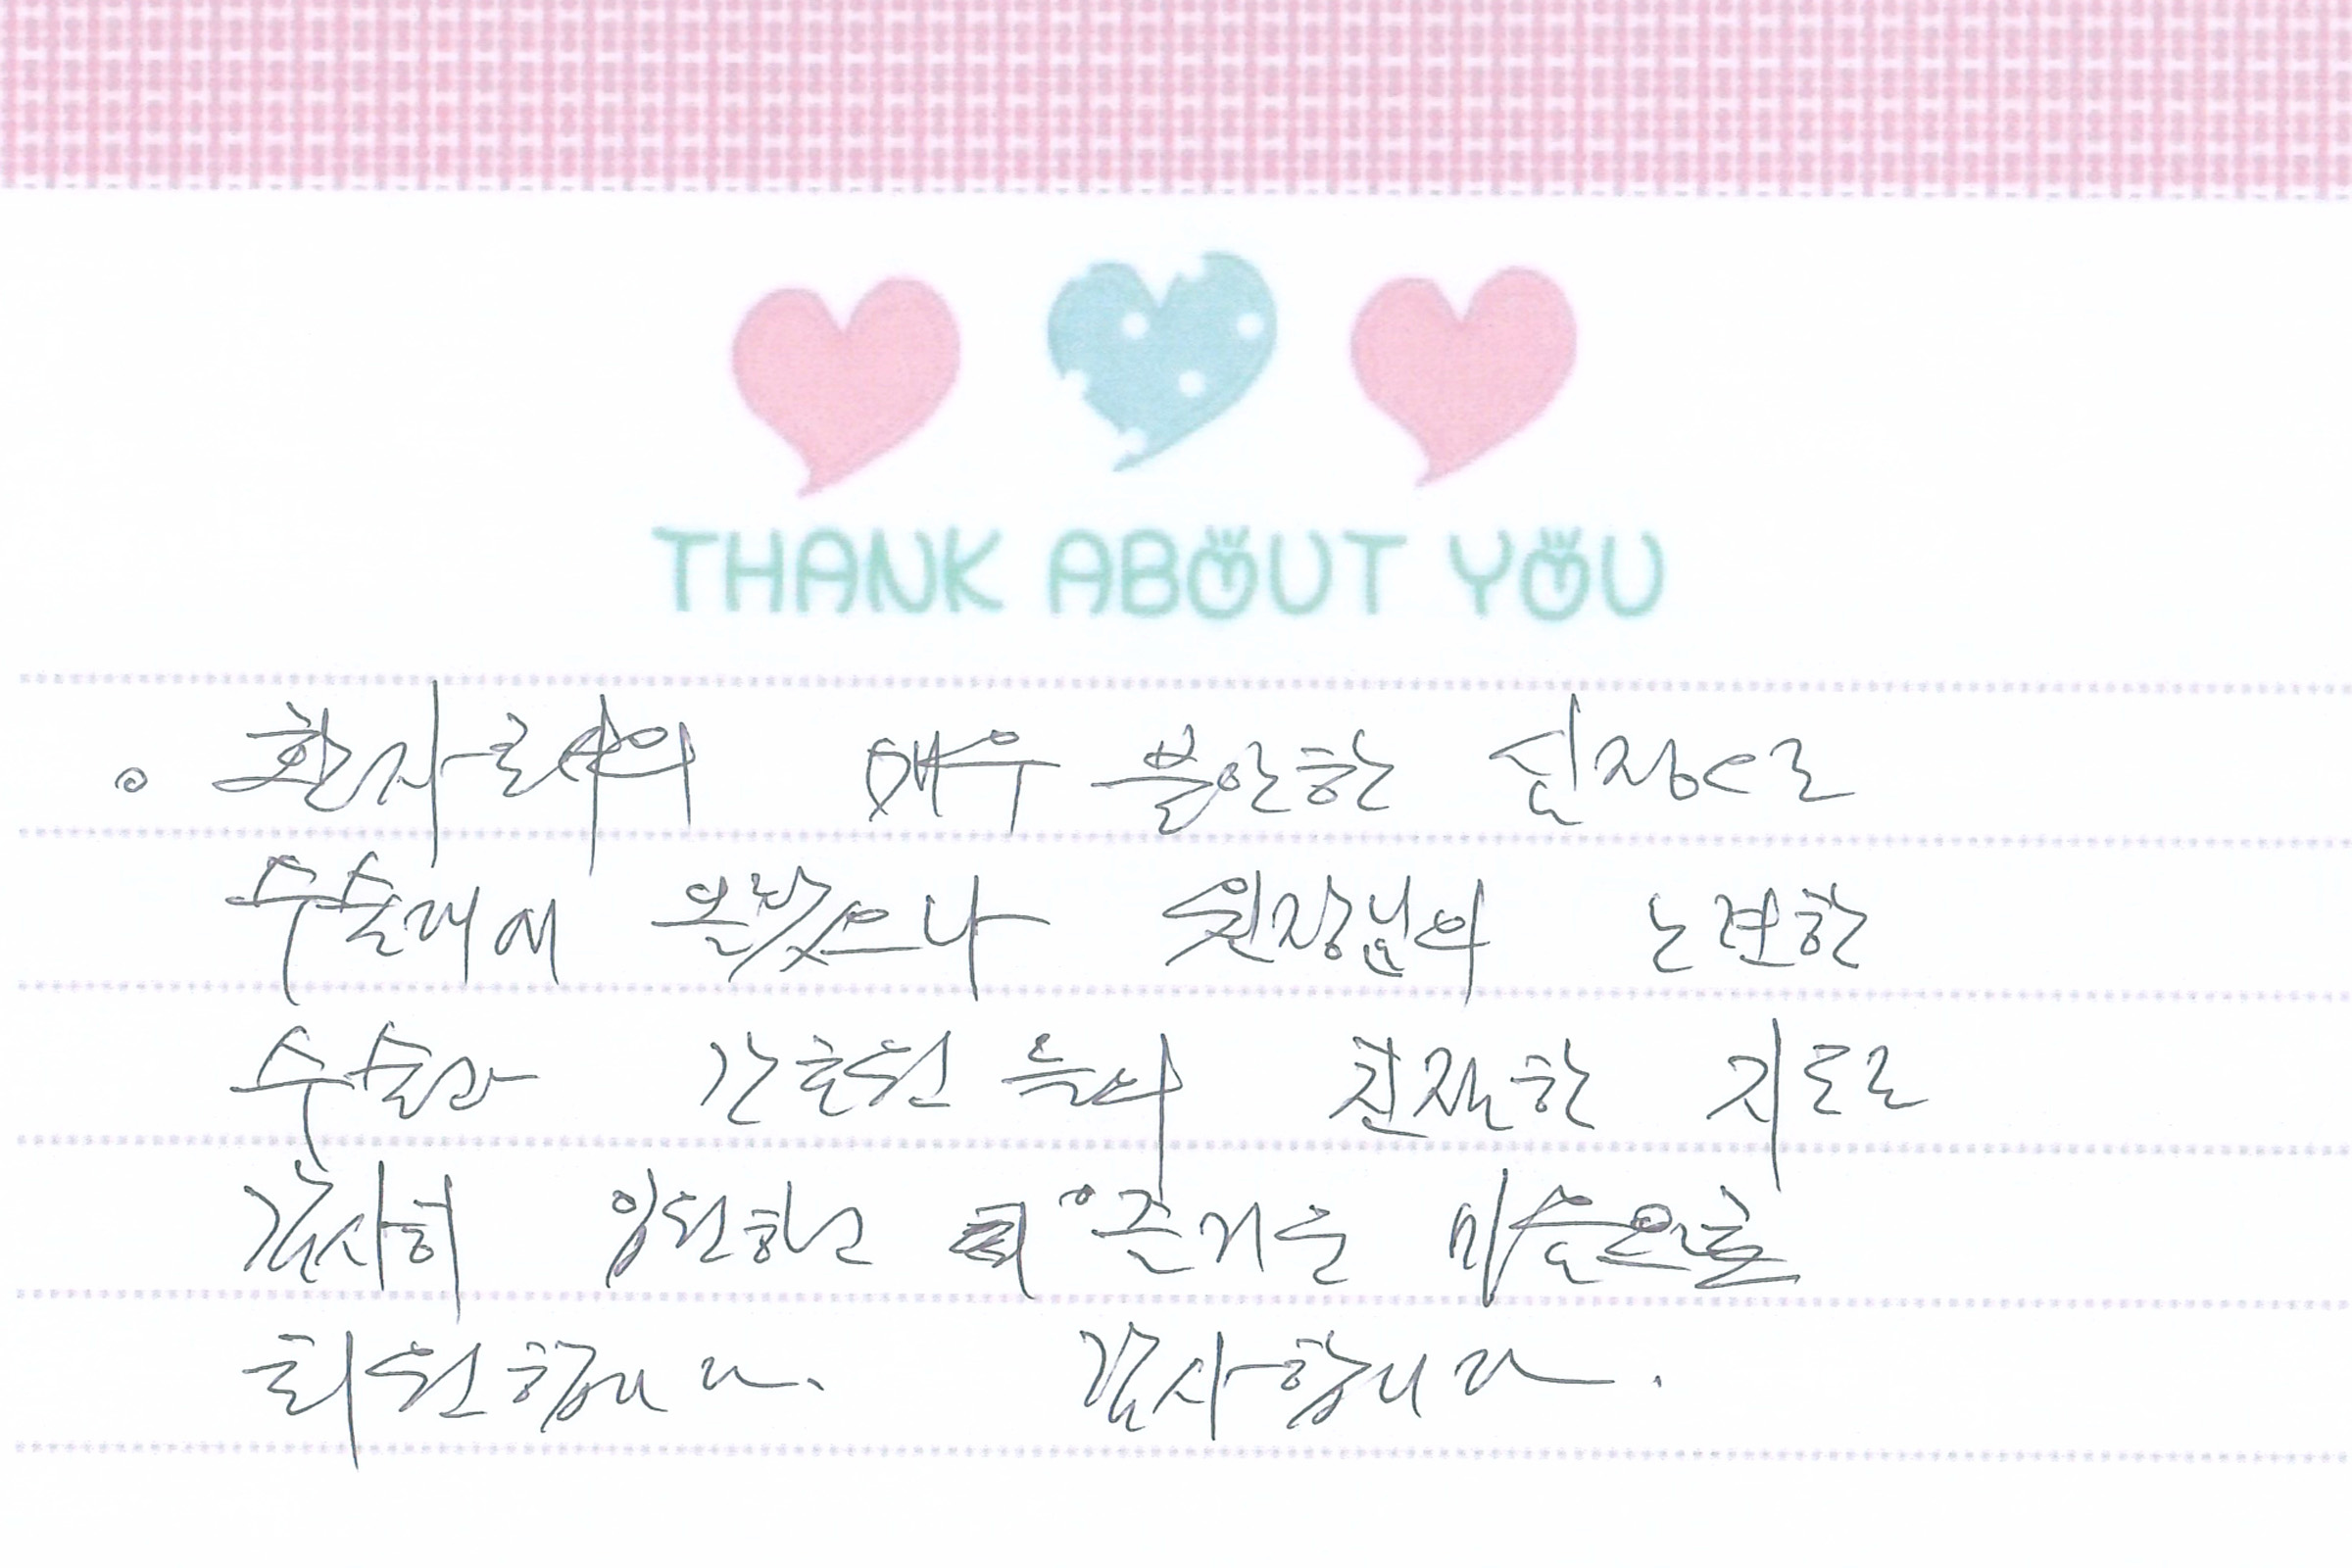 THANK ABOUT YOU
。환자로서의 매우 불안한 심정으로
수술대에 올랐으나 원장님의 노련한
수술과 간호원들의 친절한 지도로
감사히 입원하고 즐거운 마음으로
퇴원합니다. 감사합니다.